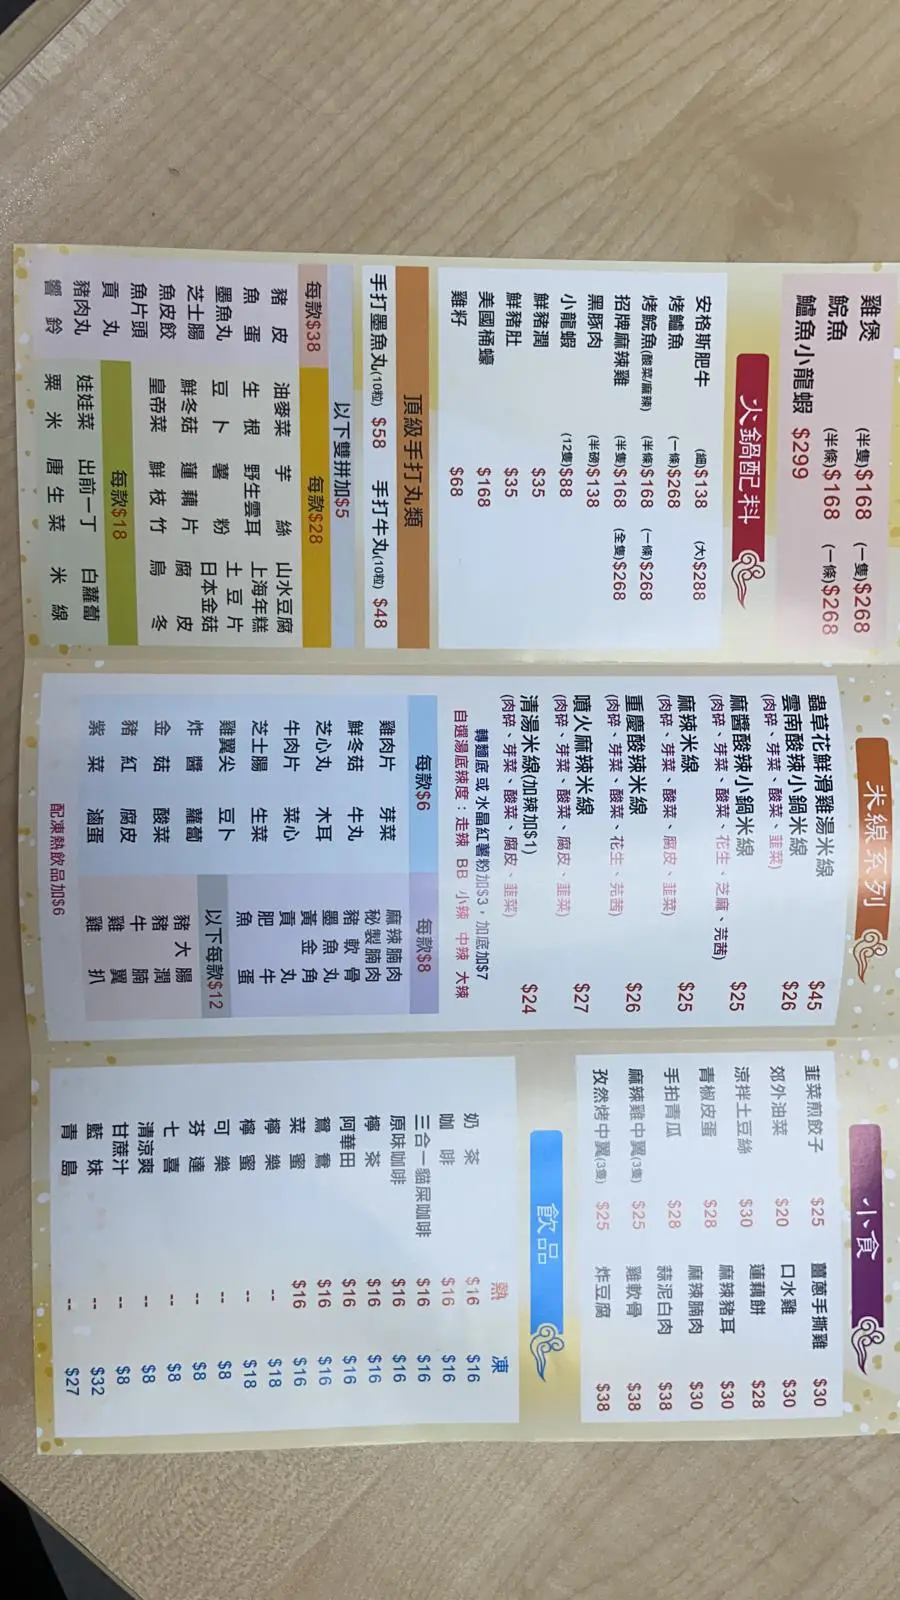 雞煲 (半隻)$168 (一隻)$268
鯇魚 (半條)$168 (一條)$268
鱸魚小龍蝦 $299
火鍋配料
安格斯肥牛 (細)$138 (大)$288
烤鱸魚 (一條)$268
烤鯇魚(酸菜/麻辣) (半條)$168 (一條)$268
招牌麻辣雞 (半隻)$168 (全隻)$268
黑豚肉 (半磅)$138
小龍蝦 (12隻)$88
鮮豬潤 $35
鮮豬肚 $35
美國桶蠔 $168
雞籽 $68
頂級手打丸類
手打墨魚丸(10粒) $58 手打牛丸(10粒) $48
以下雙拼加$5
每款$38
豬皮
魚蛋
墨魚丸
芝士腸
魚皮餃
魚片頭
貢丸
豬肉丸
響鈴
每款$28
油麥菜 芋絲 山水豆腐
生根 野生雲耳 上海年糕
豆卜 薯粉 土豆片
鮮冬菇 蓮藕片 日本金菇
皇帝菜 鮮枝竹 腐皮
烏冬
每款$18
娃娃菜 出前一丁 白蘿蔔
粟米 唐生菜 米線
米線系列
蟲草花鮮滑雞湯米線 $45
雲南酸辣小鍋米線 $26
(肉碎、芽菜、酸菜、韮菜)
麻醬酸辣小鍋米線 $25
(肉碎、芽菜、酸菜、花生、芝麻、芫茜)
麻辣米線 $25
(肉碎、芽菜、酸菜、腐皮、韮菜)
重慶酸辣米線 $26
(肉碎、芽菜、酸菜、花生、芫茜)
噴火麻辣米線 $27
(肉碎、芽菜、酸菜、腐皮、韮菜)
清湯米線(加辣加$1) $24
(肉碎、芽菜、酸菜、腐皮、韮菜)
轉麵底或水晶紅薯粉加$3，加底加$7
自選湯底辣度：走辣 BB 小辣 中辣 大辣
每款$6
雞肉片 芽菜
鮮冬菇 牛丸
芝心丸 木耳
牛肉片 菜心
芝士腸 生菜
雞翼尖 豆卜
炸醬 蘿蔔
金菇 酸菜
豬紅 腐皮
紫菜 滷蛋
每款$8
麻辣腩肉
秘製腩肉
豬軟骨
墨魚丸
黃金角
貢丸
肥牛
魚蛋
以下每款$12
豬大腸
豬潤
牛腩
雞翼
雞扒
配凍熱飲品加$6
小食
韮菜煎餃子 $25 薑蔥手撕雞 $30
郊外油菜 $20 口水雞 $30
涼拌土豆絲 $30 蓮藕餅 $28
青椒皮蛋 $28 麻辣豬耳 $30
手拍青瓜 $28 麻辣腩肉 $30
麻辣雞中翼(3隻) $25 蒜泥白肉 $38
孜然烤中翼(3隻) $25 雞軟骨 $38
炸豆腐 $38
飲品
熱 凍
奶茶 $16 $16
咖啡 $16 $16
三合一貓屎咖啡 $16 $16
原味咖啡 $16 $16
檸茶 $16 $16
阿華田 $16 $16
鴛鴦 $16 $16
菜蜜 $16 $16
檸樂 -- $18
檸蜜 -- $18
可樂 -- $8
芬達 -- $8
七喜 -- $8
清涼爽 -- $8
甘蔗汁 -- $8
藍妹 -- $32
青島 -- $27